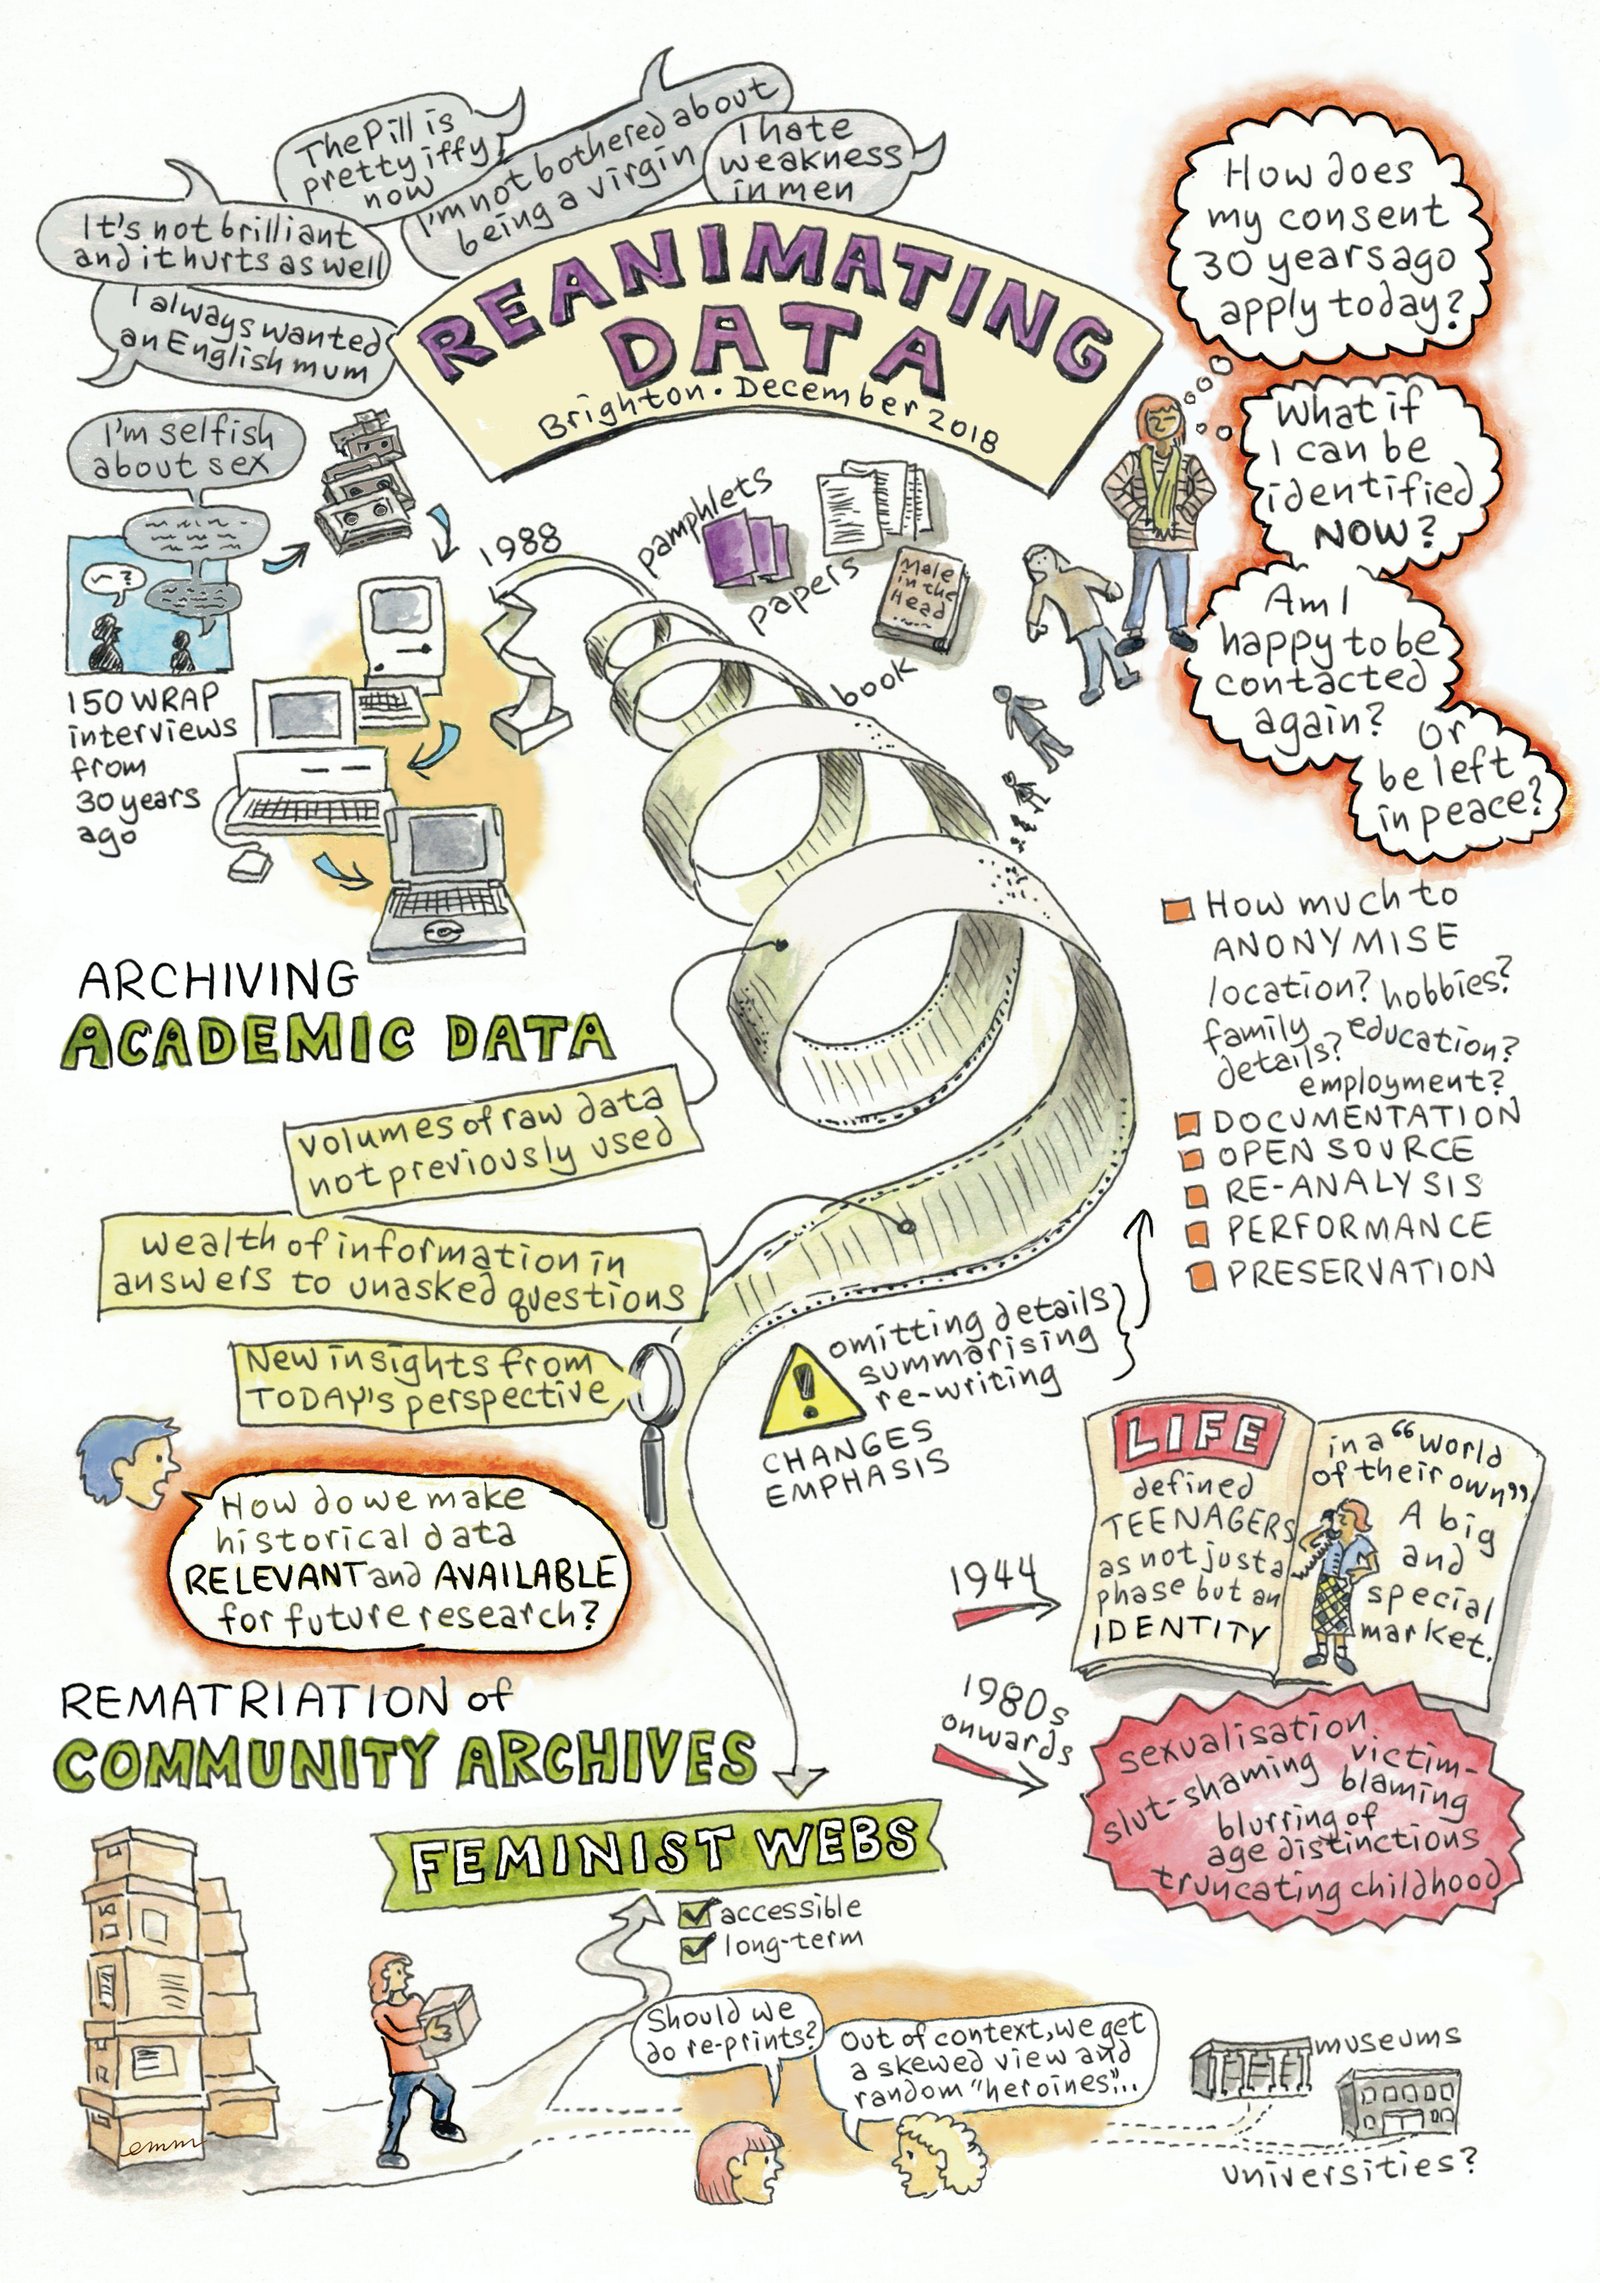 The Pill is
pretty iffy
now
I'm not bothered about
being a virgin
I hate
weakness
in men
It's not brilliant
and it hurts as well
I always wanted
an English mum
I'm selfish
about sex
?
150 WRAP
interviews
from
30 years
ago
REANIMATING
DATA
Brighton • December 2018
1988
pamphlets
papers
Male
in the
Head
book
How does
my consent
30 years ago
apply today?
What if
I can be
identified
NOW?
Am I
happy to be
contacted
again?
or
be left
in peace?
ARCHIVING
ACADEMIC DATA
volumes of raw data
not previously used
wealth of information in
answers to unasked questions
New insights from
TODAY's perspective
How do we make
historical data
RELEVANT and AVAILABLE
for future research?
How much to
ANONYMISE
location? hobbies?
family
details?
education?
employment?
DOCUMENTATION
OPEN SOURCE
RE-ANALYSIS
PERFORMANCE
PRESERVATION
!
omitting details
summarising
re-writing
CHANGES
EMPHASIS
1944
LIFE
defined
TEENAGERS
as not just a
phase but an
IDENTITY
in a "world
of their own"
A big
and
special
market.
1980s
onwards
sexualisation
victim-
blaming
slut-shaming
blurring of
age distinctions
truncating childhood
REMATRIATION of
COMMUNITY ARCHIVES
FEMINIST WEBS
accessible
long-term
emm
Should we
do re-prints?
Out of context, we get
a skewed view and
random "heroines"...
museums
universities?